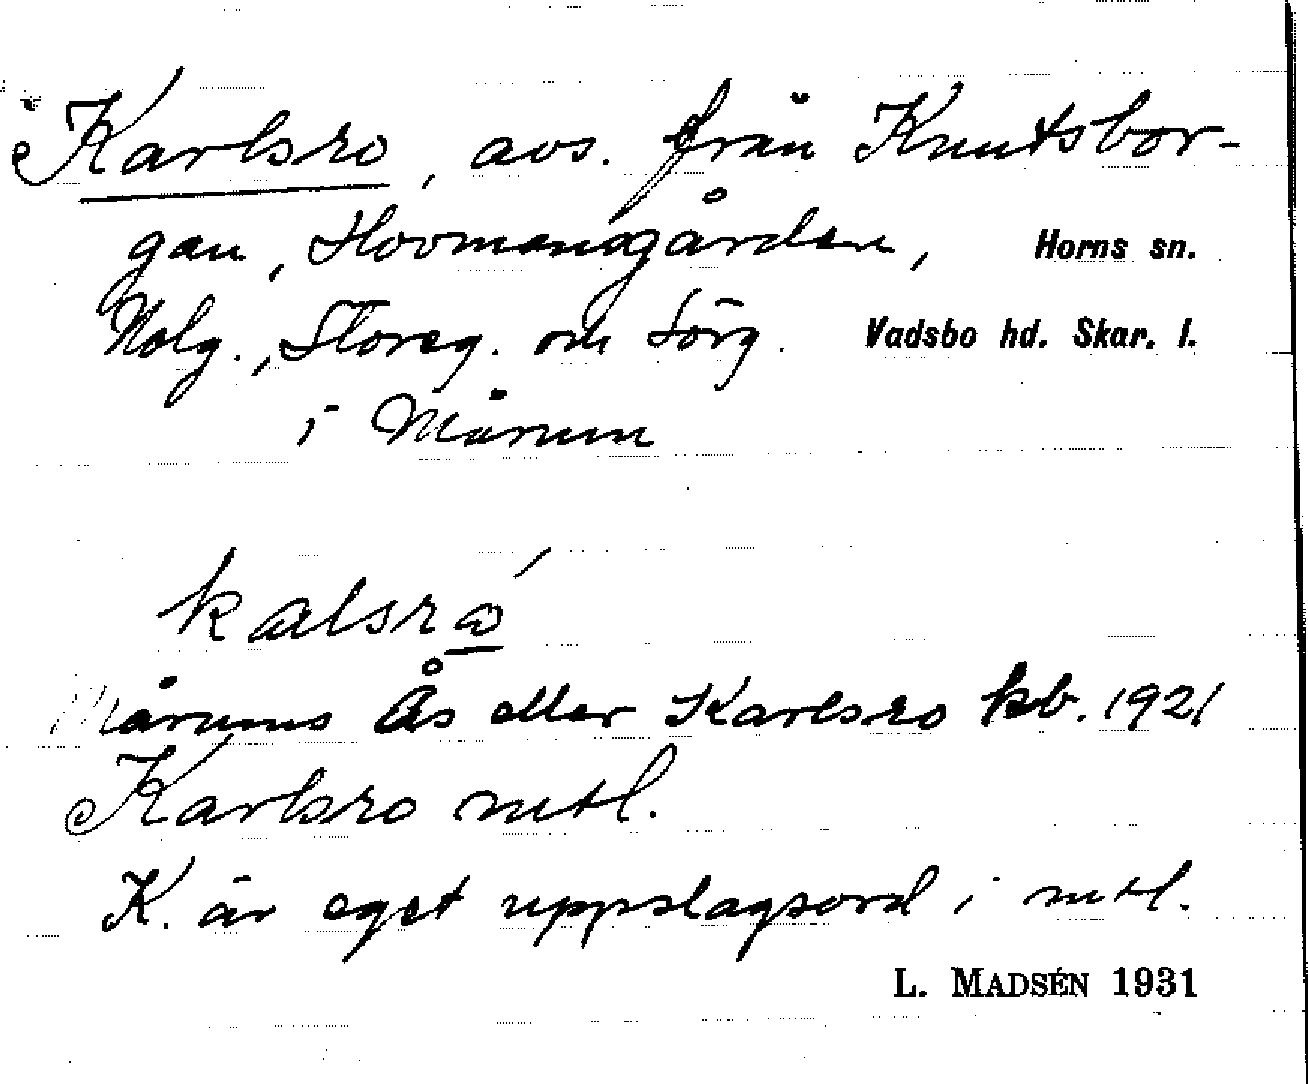 Karlsro, avs. från Knutsbor-
gan, Hovmansgården, Horns sn.
Nolg., Storeg. om Sörg. Vadsbo hd. Skar. l.
i Mårum
kalsró
Mårums Ås eller Karlsro kb. 1921
Karlsro mtl.
K. är eget uppslagsord i mtl.
L. MADSÉN 1931